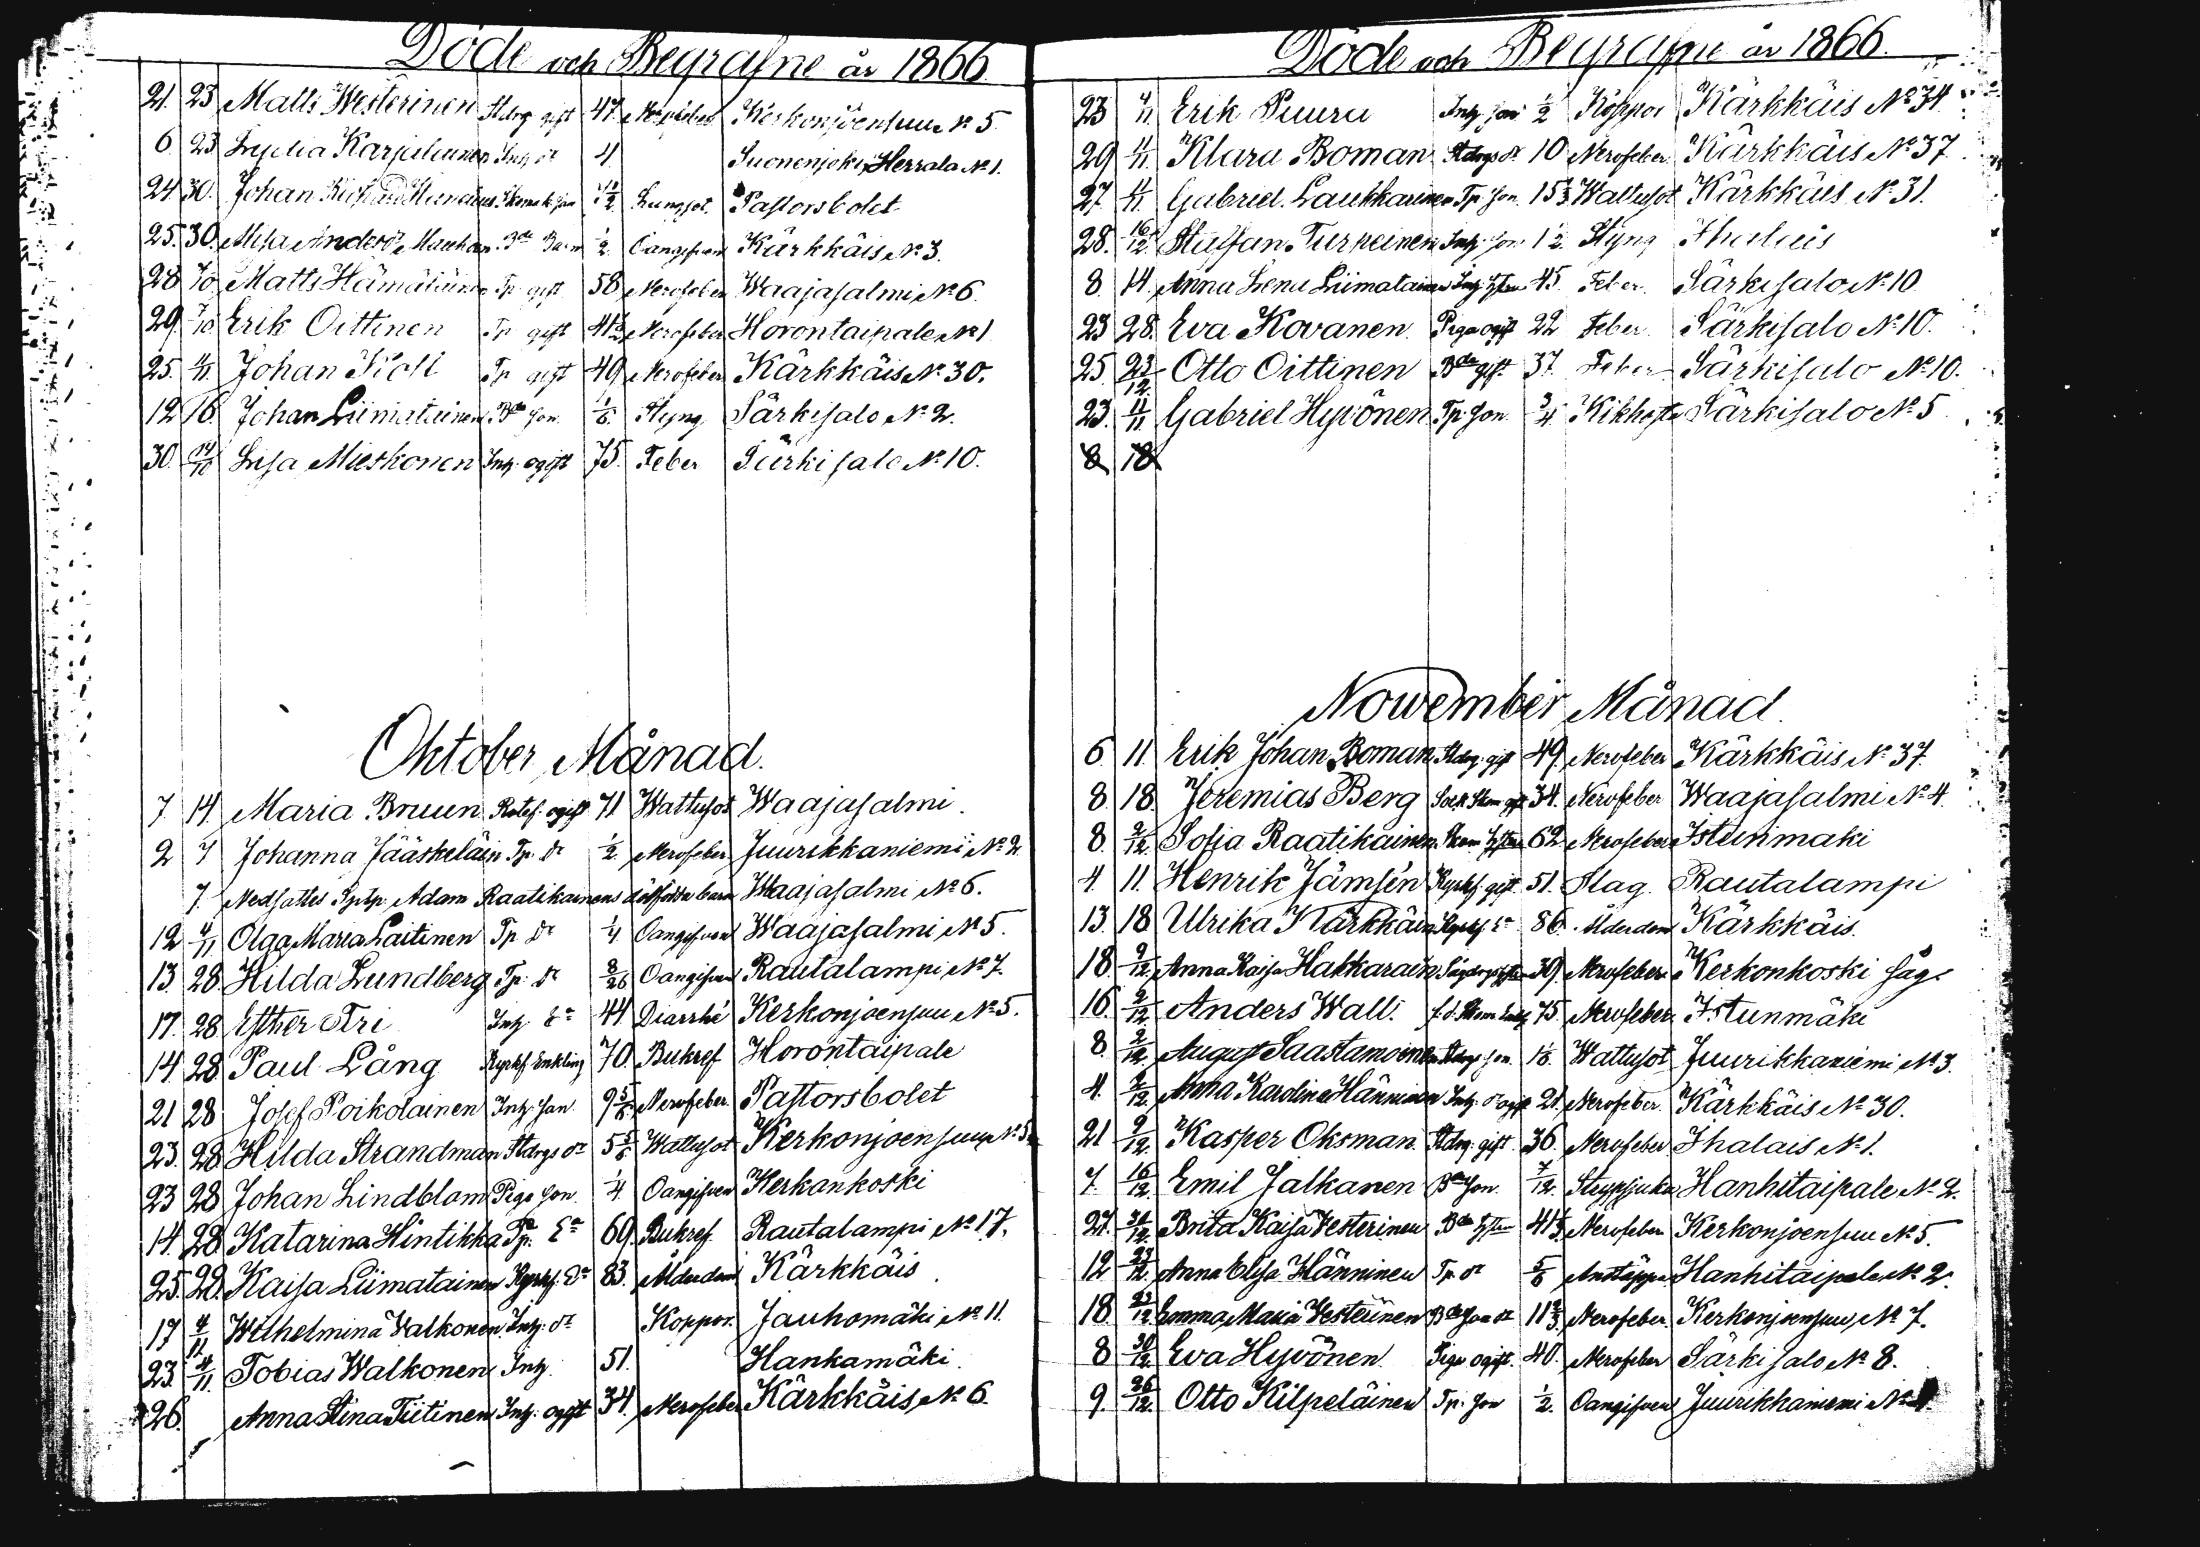 Döde och Begrafne år 1866.
21. 23 Matts Westerinen Stdrg gift 47. Nervfeber Kerkonjoensuu № 5.
6 23 Lydia Karjalainen Inh. dr 4 Suonenjoki, Herrala № 1.
24 30. Johan Skom. Son 1/2 Lungsot. Pastorsbolet
25. 30. Anders Bde Barn 1/2 Oangifven Kärkkäis № 3.
28 7/10 Matts Hämäläinen Tp gift 58 Nervfeber Waajasalmi № 6.
29. 7/10 Erik Oittinen Tp gift 41 Nervfeber Horontaipale № 1
25. 4/11. Johan Tp gift 49 Nervfeber Kärkkäis № 30.
12 16. Johan Liimatainen Bde Son 1/6. Styng Särkisalo № 2.
30. 14/10 Lisa Mieskonen Inh. ogift 75. Feber Särkisalo № 10.
Oktober Månad.
7 14 Maria Bruun Rotef. ogift 71 Wattusot Waajasalmi.
2 7 Johanna Jääskeläin Tp. dr 1/2 Nervfeber Juurikkaniemi № 2
7. Nedsattes Adam Raatikainens dödfödda barn Waajasalmi № 6.
12 4/11 Olga Maria Laitinen Tp dr 1/4 Oangifven Waajasalmi № 5.
13. 28. Hilda Lundberg Tp. dr 8/26 Oangifven Rautalampi № 7.
17. 28 Esther Inh. Ea 44 Diarrhé Kerkonjoensuu № 5.
14. 28 Paul Lång Kyrkf. Enkling 70. Bukref Horontaipale
21 28 Josef Poikolainen Inh. Son. 9 5/6 Nervfeber Pastorsbolet
23. 28 Hilda Strandman Stdrgs dr 5 5/6 Wattusot Kerkonjoensuu № 5.
23 28 Johan Lindblom Piga Son. 1/4 Oangifven Kerkankoski
14. 28 Katarina Hintikka Tp. Ea 69. Bukref. Rautalampi № 17.
25. 28. Kaisa Liimatainen Kyrkf. Ea 83. Ålderdom Kärkkäis
17 4/11 Wilhelmina Walkonen Inh. dr Koppor. Jauhomäki № 11.
23. 4/11. Tobias Walkonen Inh. 51. Hankamäki.
26. Anna Stina Tiitinen Inh. ogift 34. Nervfeber Kärkkäis № 6.
Döde och Begrafne år 1866.
23 4/11 Erik Puuru Inh. son 1/2 Koppor Kärkkäis № 34
29 4/11. Klara Boman Stdrgs dr. 10 Nervfeber Kärkkäis № 37
27. 4/11. Gabriel Laukkarinen Tp. Son. Wattusot Kärkkäis № 31.
28. 16/12 Staffan Turpeinen Inh. Son Styng Ihalais
8. 14. Anna Lena Liimatainen Inh. hstru 45. Feber. Särkisalo № 10
23 28. Eva Kovanen Piga ogift 22 Feber Särkisalo № 10.
25 23/12 Otto Oittinen Bde gift 37. Feber Särkisalo № 10.
23. 11/11 Gabriel Hyvönen Tp. Son. 3/4. Kikhosta Särkisalo № 5
8 18
Nowember Månad.
6 11. Erik Johan Boman Stdrg. gift 49. Nervfeber Kärkkäis № 37
8. 18. Jeremias Berg gift 34. Nervfeber Waajasalmi № 4.
8. 2/12. Sofia Raatikainen hstru 62. Nervfeber Istunmäki
4 11. Henrik Jämsén Kyrkf. gift. 51. Slag. Rautalampi
13. 18 Ulrika Kärkkäin Kyrkf. Ea 86. Ålderdom Kärkkäis.
18. 9/12. Anna Kaisa Hakkarain 39. Nervfeber Kerkonkoski såg.
16. 2/12. Anders Wall. 75. Nervfeber Istunmäki
8. 2/12. August Saastamoinen Stdrgs Son. Wattusot Juurikkaniemi № 3.
4. 2/12. Anna Karolina Hänninen Inh. dr ogift 21. Nervfeber. Kärkkäis № 30.
21 9/12. Kasper Oksman. Stdrg. gift. 36. Nervfeber Ihalais № 1.
7. 16/12. Emil Jalkanen Bde Son. 7/12. Strypsjuka Hanhitaipale № 2.
27. Brita Kaisa Vesterinen Bde hstru 41 Nervfeber Kerkonjoensuu № 5.
12 23/12. Anna Elisa Hänninen Tp. dr 5/6 Andtäppa Hanhitaipale № 2.
18. 23/12 Emma Maria Vesterinen Bde Son dr 11 Nervfeber. Kerkonjoensuu № 7.
8 30/12. Eva Hyvönen Piga ogift. 40. Nervfeber Särkisalo № 8.
9. 26/12. Otto Kilpeläinen Tp. Son 1/2. Oangifven Juurikkaniemi №